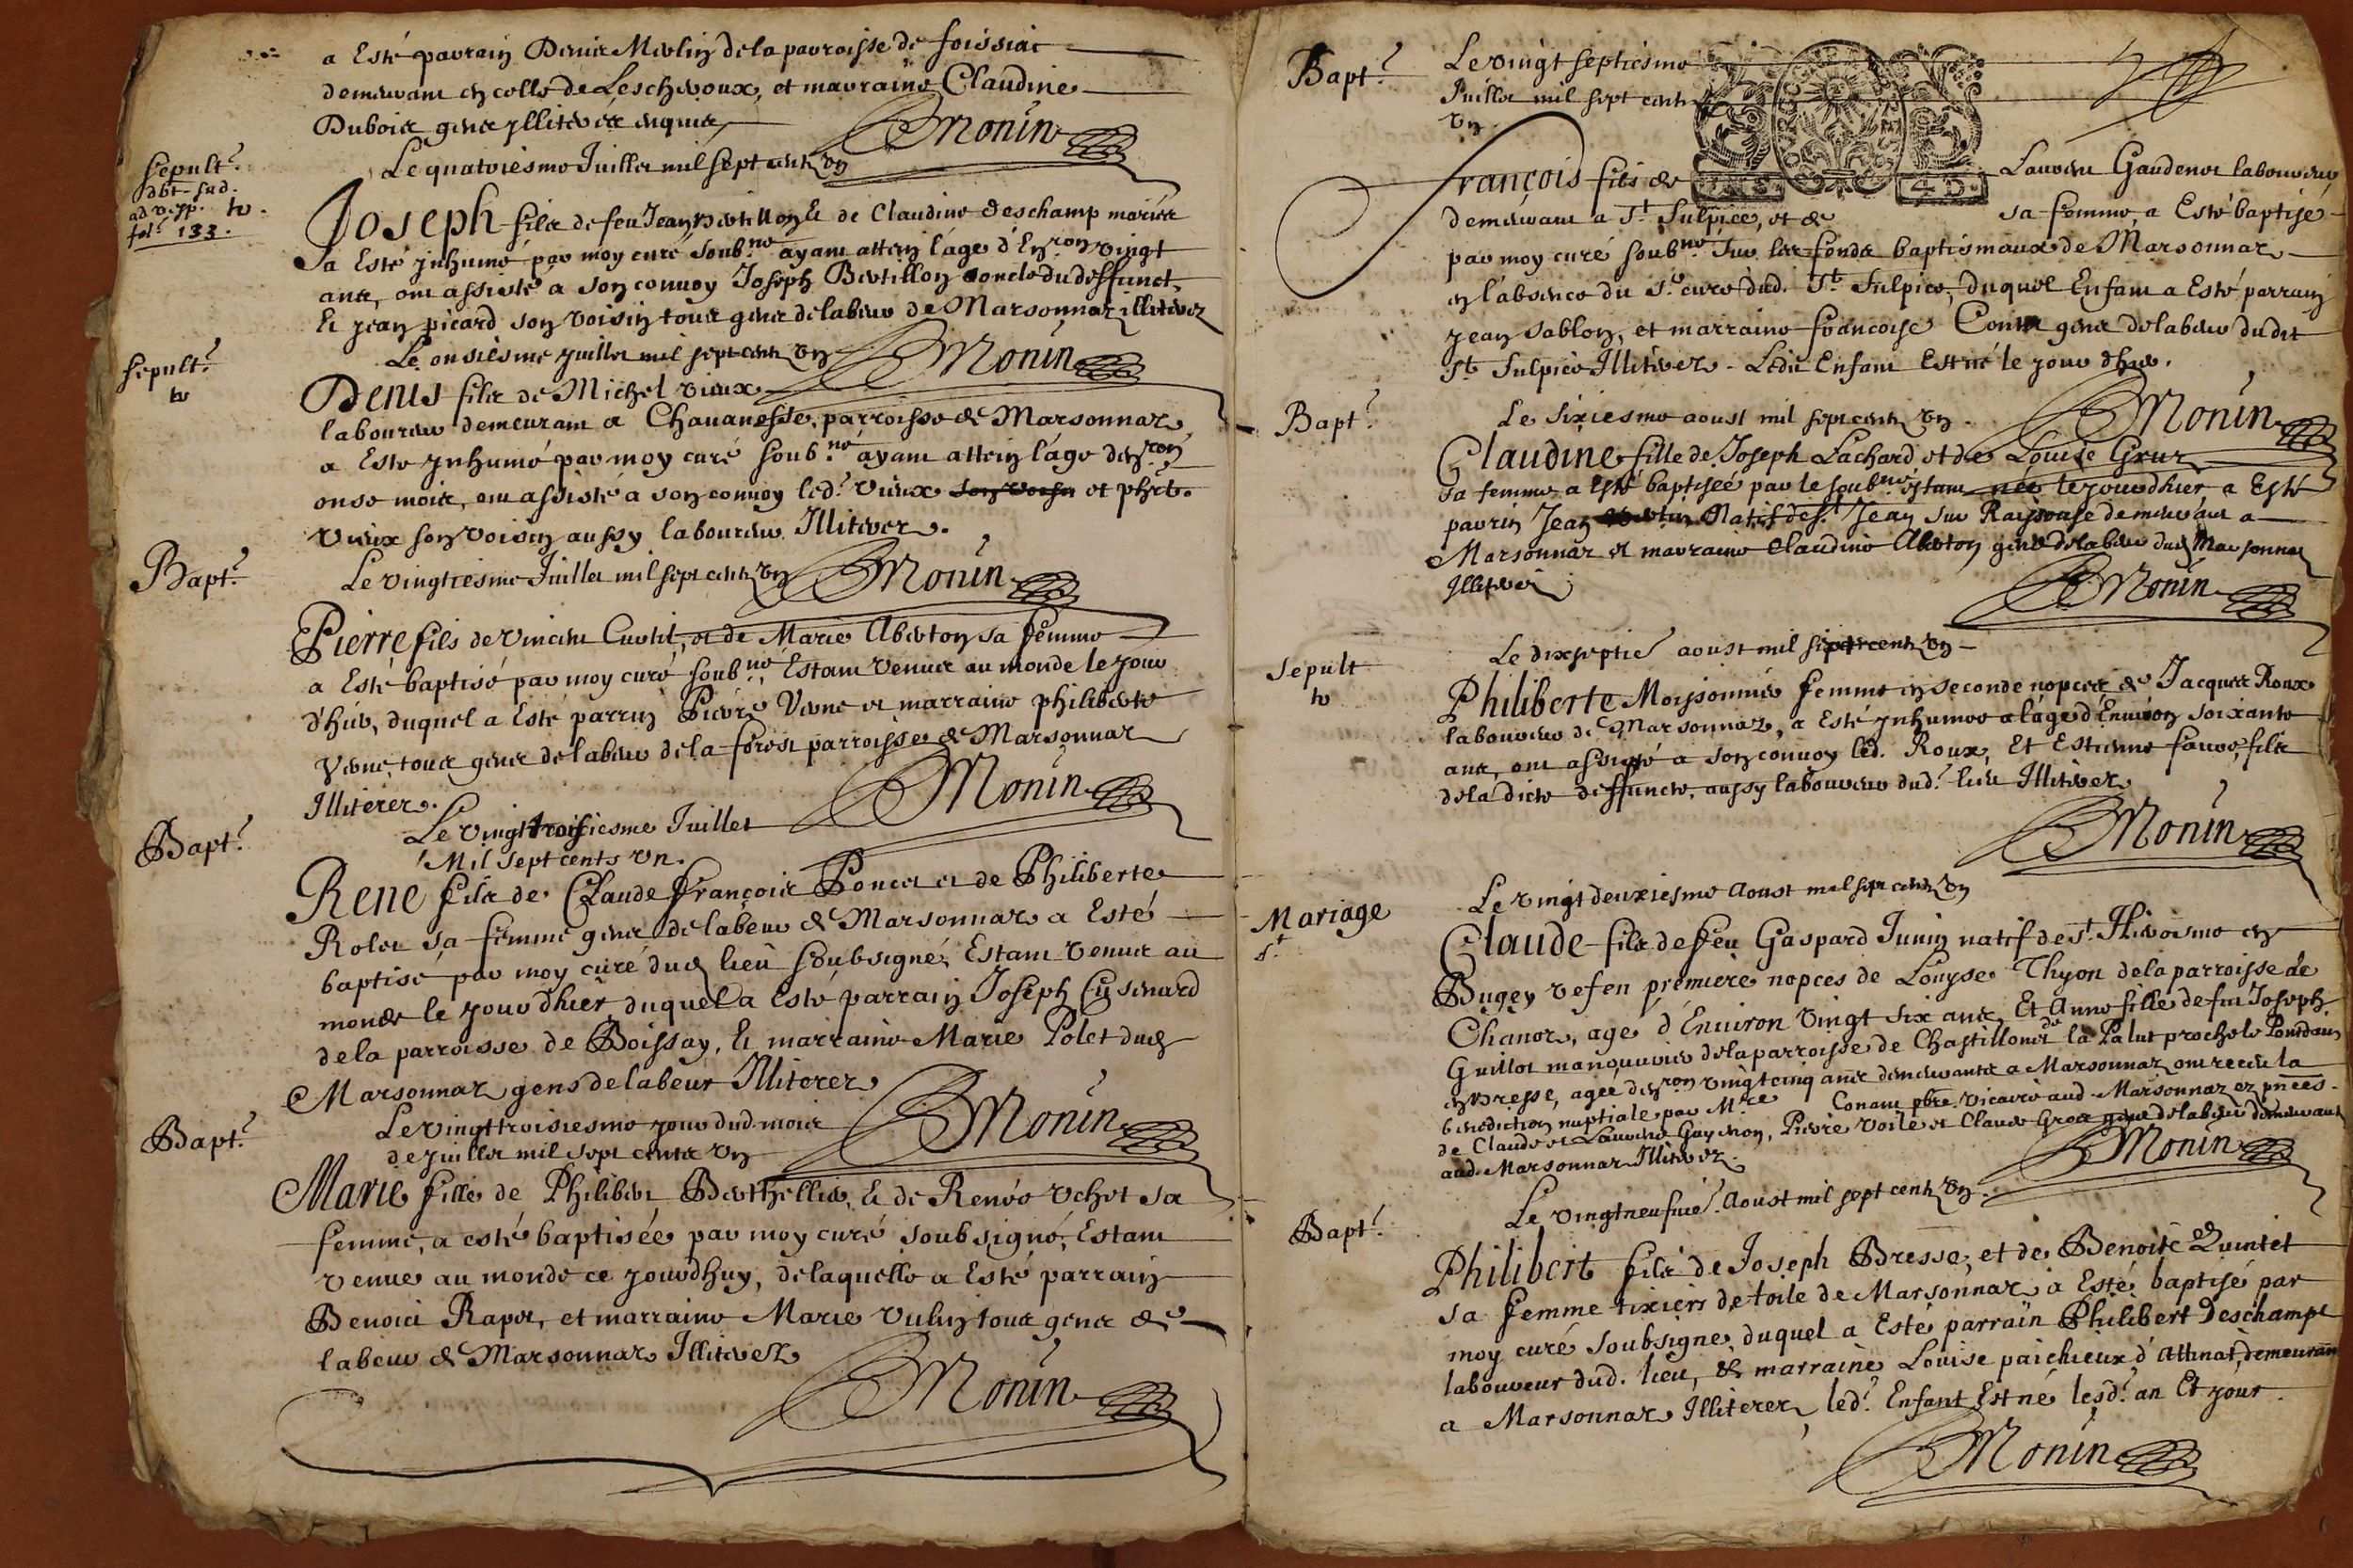 a Esté parrain Denis Merlin de la parroisse de foissiac
demeurant en celle de Lescheroux, et marraine Claudine
Dubois gens jlliterés enquis
Monin
Sepult.
Le quatorziesme Juillet mil sept cents Vn
fol. 133.
Joseph fils de feu Jean Bertillon Et de Claudine deschamp mariés
a Esté jnhumé par moy curé soub.né ayant attein l'âge d'En.ron vingt
ans, ont assisté a son convoy Joseph Bertillon oncle du deffunct,
Et jean picard son voisin tous gens de labeur de Marsonnaz illiterez
Sepult.
Le onsiesme juillet mil sept cents Vn
Monin
Denis fils de Michel vieux
laboureur demeurant a Chavanosse, parroisse de Marsonnaz
a Esté jnhumé par moy curé soub.né ayant attein l'âge d'en.ron
onse mois, ont assisté a son convoy led. vieux son voisin et phib.
vieux son voisin aussy laboureur Illiterez.
Bapt.
Le vingtiesme Juillet mil sept cents Vn
Monin
Pierre fils de vincent Curtil, et de Marie Aberton sa femme
a Esté baptisé par moy curé soub.né Estant venus au monde le jour
d'hier, duquel a Esté parrin Pierre Verne et marraine philiberte
Verne, tous gens de labeur de la forest parroisse de Marsonnaz
Illiterez.
Monin
Bapt.
Le vingt troisiesme Juillet
Mil sept cents vn.
Rene fils de Claude françois Poncet et de Philiberte
Rolet sa femme gens de labeur de Marsonnaz a Esté
baptisé par moy curé dud lieu soubsigné, Estant venus au
monde le jour d'hier, duquel a Esté parrain Joseph Cusinard
de la parroisse de Boissay, Et marraine Marie Polet dud
Marsonnaz gens de labeur Illiterez
Bapt.
Le vingt troisiesme jour dud. mois
de juillet mil sept cents Vn
Monin
Marie fille de Philibert Berthellier, Et de Renée vchet sa
femme, a esté baptisée par moy curé soubsigné, Estant
venue au monde ce jourdhuy, de laquelle a Esté parrain
Benoict Rapet, et marraine Marie vulin tous gens de
labeur de Marsonnaz Illiterez
Monin
Bapt.
Le vingt septiesme
Juillet mil sept cents
Vn.
François fils de Laurent Gaudenet laboureur
demeurant a St. Sulpice, et de sa femme, a Esté baptisé
par moy curé soub.né sur les fonds baptismaux de Marsonnaz
en l'absence du Sr. curé dud. St. Sulpice, Duquel Enfant a Esté parrain
jean sablon, et marraine francoise Conte gens de labeur du dit
St. Sulpice Illiterez. Ledit Enfant Est né le jour d'hier.
Bapt.
Le sixiesme aoust mil sept cents Vn.
Monin
Claudine fille de Joseph Lachard et de Louise Gruz
sa femme a Esté baptisée par le soub.né estant née le jour dhier a Esté
parrin Jean Natif de St. Jean sur Raissouse demeurant a
Marsonnaz et marraine Claudine Aberton gens de labeur dud Marsonnaz
Illiterez
Monin
Sepult
Le dixseptie aoust mil sept cents Vn
Philiberte Moissonnier femme en seconde nopces de Jacques Roux
laboureur de Marsonnaz, a Esté jnhumee a l'âge d'Environ soixante
ans, ont assisté a son convoy led. Roux, Et Estienne faure, fils
de la dicte deffuncte, aussy laboureur dud. lieu Illiterez
Monin
Mariage
Le vingt deuxiesme Aoust mil sept cents Vn
Claude fils de feu Gaspard Junin natif de St. Hieroisme en
Bugey vef en premiere nopces de Louyse Thyon de la parroisse de
Chanoz, agé d'Environ vingt six ans, Et Anne fille de feu Joseph
Guillot manouvrier de la parroisse de Chastillonet de la Palut proche le Pontdain
en Bresse, agee d'en.ron vingt cinq ans demeurants a Marsonnaz, ont receu la
benediction nuptiale par M.re Conant pbre. vicaire aud. Marsonnaz ez pnces
de Claude et Laurent Guychon, Pierre voile et Claude Gros gens de labeur demeurants
aud. Marsonnaz Illiterez.
Monin
Bapt.
Le vingtneufvie. Aoust mil sept cents Vn.
Philibert fils de Joseph Bresse, et de Benoite Quintet
sa femme tixiers de toile de Marsonnaz a Esté baptisé par
moy curé soubsigne, duquel a Esté parrain Philibert Deschamps
laboureur dud. lieu, & marraine Louise paichieux d'Attinat, demeurant
a Marsonnaz Illiterez, led. Enfant Est né lesd. an Et jour.
Monin